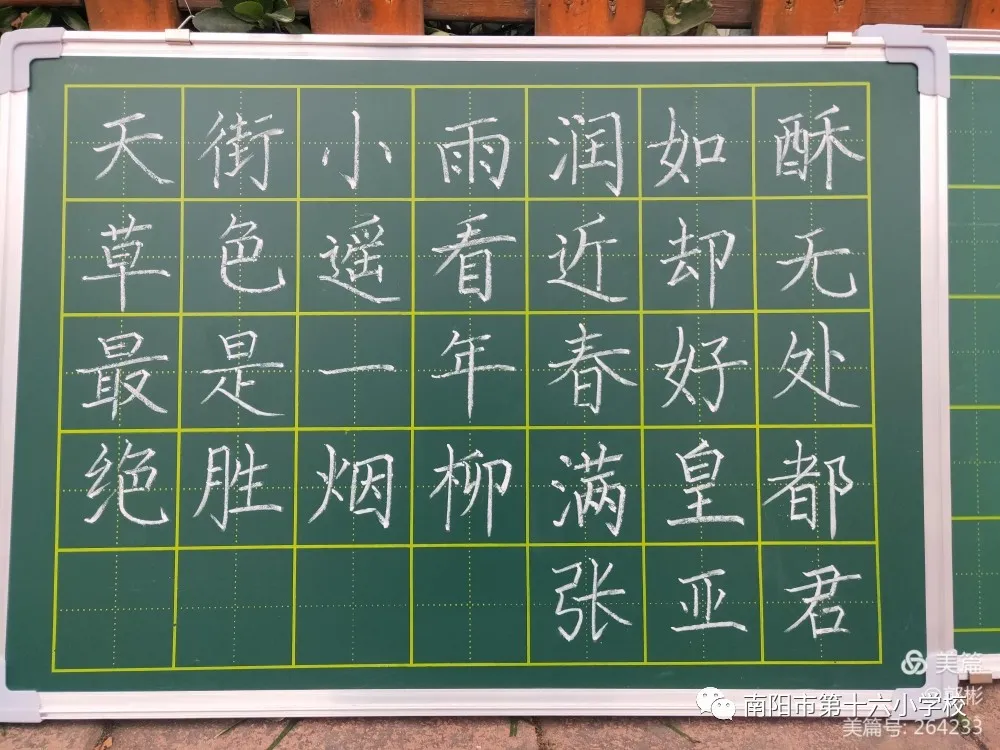 天街小雨润如酥
草色遥看近却无
最是一年春好处
绝胜烟柳满皇都
张亚君
美篇
南阳市第十六小学校
美篇号: 264233